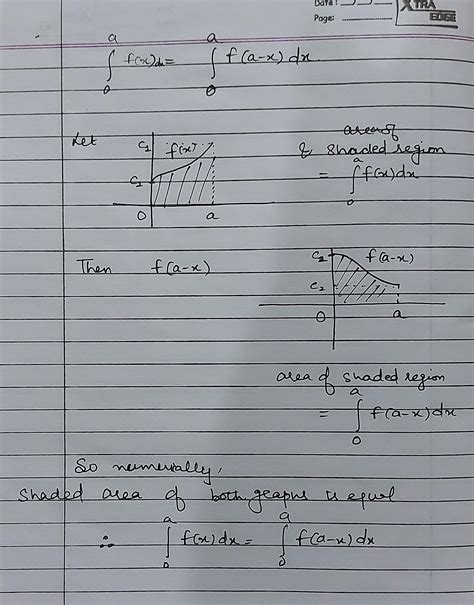 Date:
Page:
XTRA
EDGE
∫₀ᵃ f(x)dx = ∫₀ᵃ f(a-x) dx.
Let
C₁
f(x)
C₂
O
a
area of
& shaded region
= ∫₀ᵃ f(x)dx
Then f(a-x)
C₂
f(a-x)
C₂
O
a
area of shaded region
= ∫₀ᵃ f(a-x)dx
So numerially,
shaded area of both graphs is equal
∴ ∫₀ᵃ f(x)dx = ∫₀ᵃ f(a-x)dx